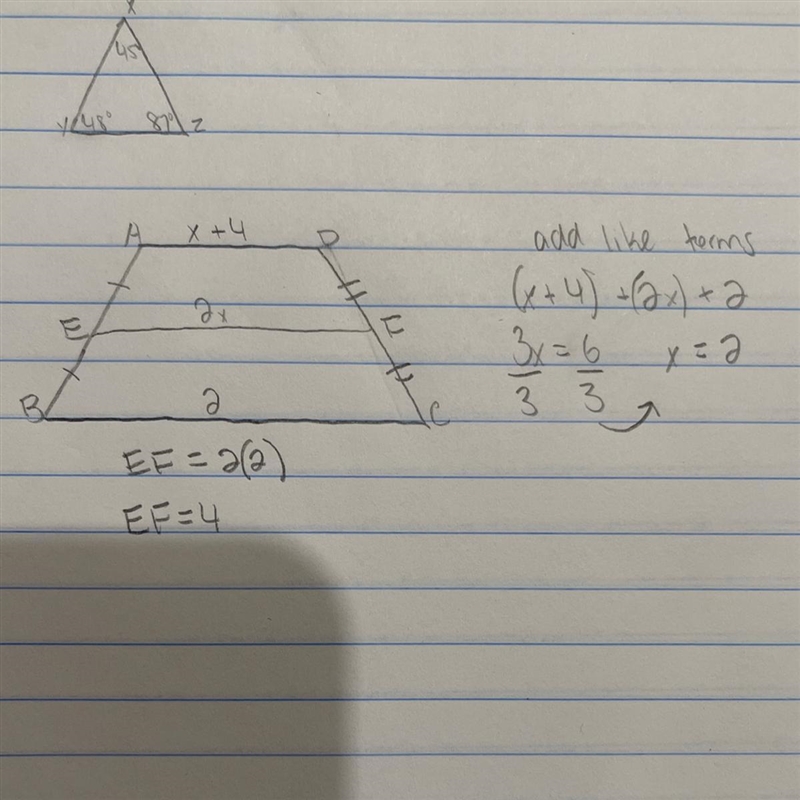 X
45°
Y 48° 87° Z
A x + 4 D
E 2x F
B 2 C
EF = 2(2)
EF = 4
add like terms
(x + 4) + (2x) + 2
3x = 6 x = 2
3 3